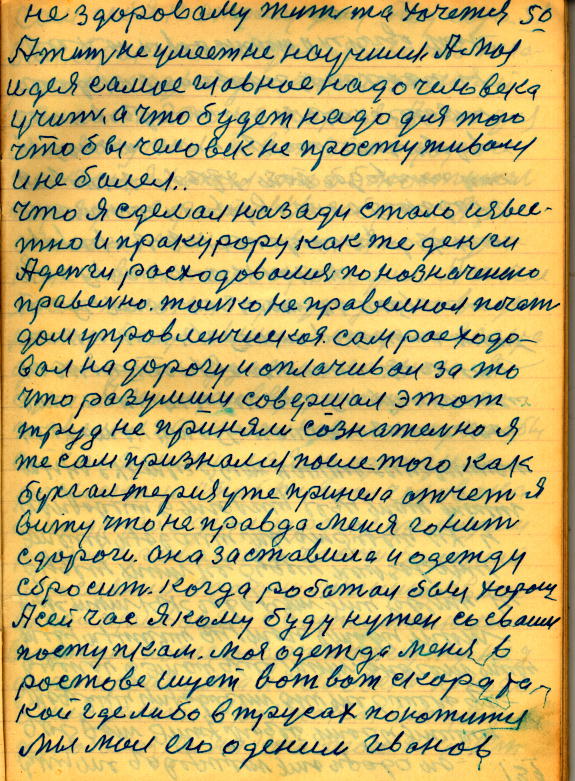 не здороваму жить та хочется 50
А жить не умеет не научился. А моя
идея самое главное надо человека
учить, а что будет надо для того
чтобы человек не простуживался
и не болел..
что я сделал назади стало извес-
тно и пракурору как же деньги
А деньги расходовался по назначению
правельно. толко не правелная печать
дом управленчиская. сам расходо-
вал на дорогу и оплачивал за то
что разумши совершал этот
труд не приняли сознателно я
же сам признался после того как
бухгалтерия уже принела отчет я
вижу что не правда меня гонит
с дороги. она заставила и одежду
сбросить. когда работал был хорош
А сейчас я кому буду нужен со своим
поступкам. моя одежда меня в
ростове ищет вот вот скоро та-
кой где либо в трусах покажится
мы мол его оденим Иванов